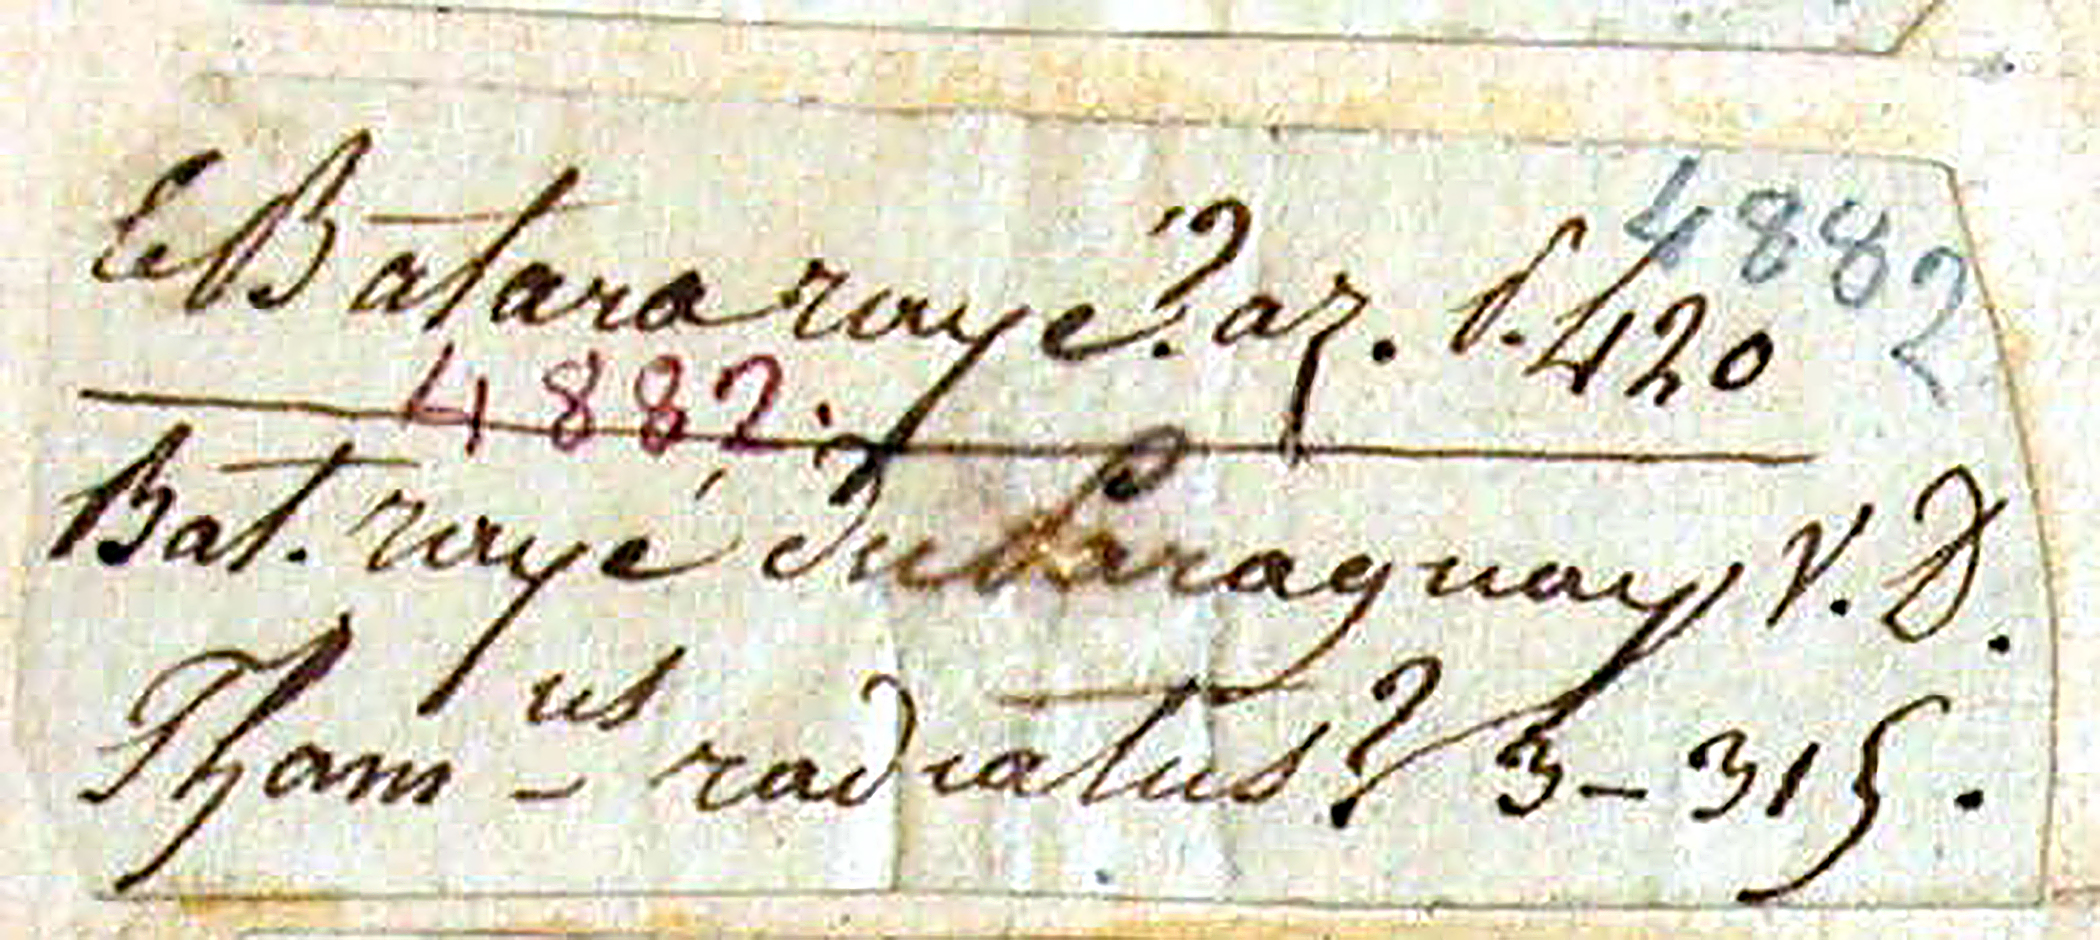 4882
le Batara rayé? az. P. 420
4882.
Bat. rayé du Paraguay V. D.
Tham-us radiatus? 3-315.